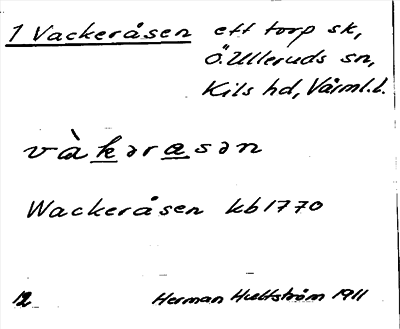 1 Vackeråsen ett torp sk,
Ö. Ulleruds sn,
Kils hd, Värml. l.
vàkəraₔsən
Wackeråsen kb 1770
12 Herman Hultström 1911